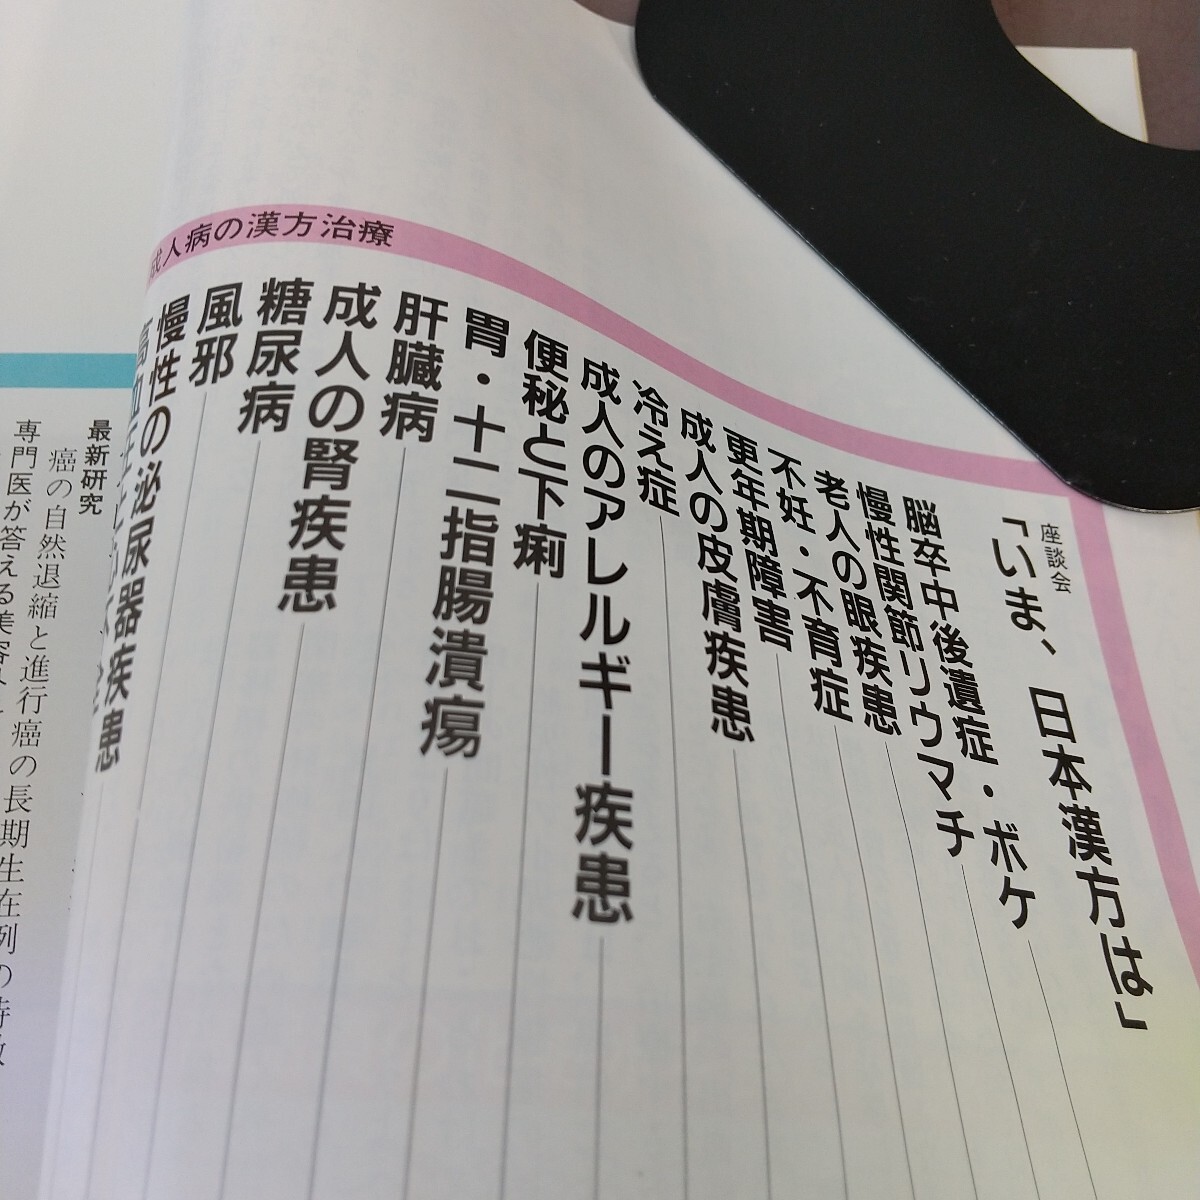 成人病の漢方治療
座談会
「いま、日本漢方は」
脳卒中後遺症・ボケ
慢性関節リウマチ
老人の眼疾患
不妊・不育症
更年期障害
成人の皮膚疾患
冷え症
成人のアレルギー疾患
便秘と下痢
胃・十二指腸潰瘍
肝臓病
成人の腎疾患
糖尿病
風邪
慢性の泌尿器疾患
高血圧
最新研究
癌の自然退縮と進行癌の長期生存例の特徴
専門医が答える美容